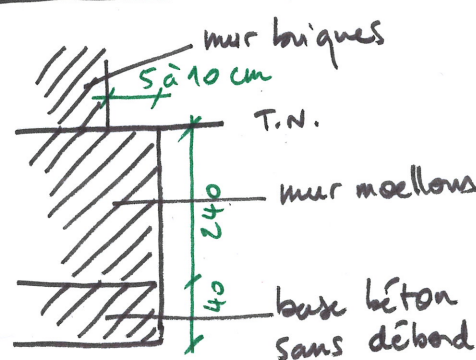 mur briques
5 à 10 cm
T.N.
mur moellons
240
40
base béton
sans débord